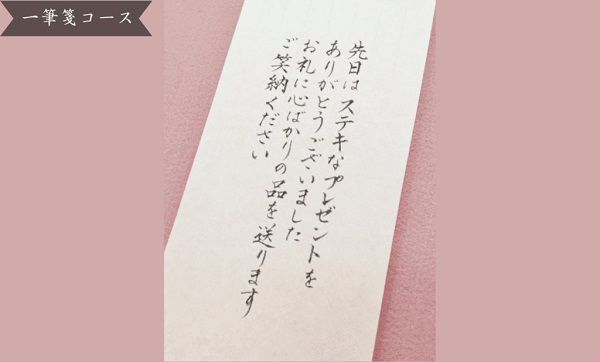 一筆箋コース
先日はステキなプレゼントを
ありがとうございました
お礼に心ばかりの品を送ります
ご笑納ください